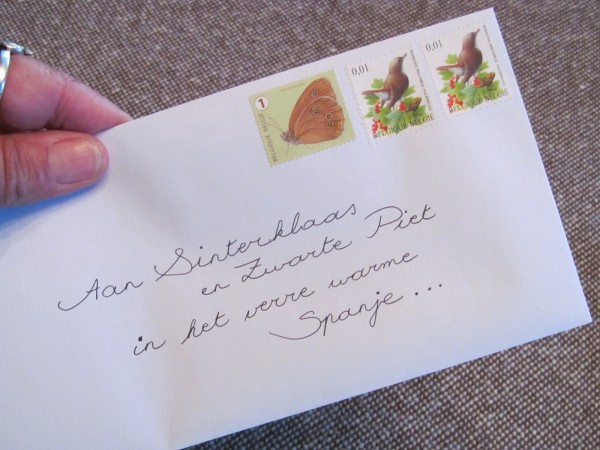 1
BELGIQUE BELGIË
0,01
BELGIQUE BELGIË
0,01
BELGIQUE BELGIË
Aan Sinterklaas
en Zwarte Piet
in het verre warme
Spanje ...